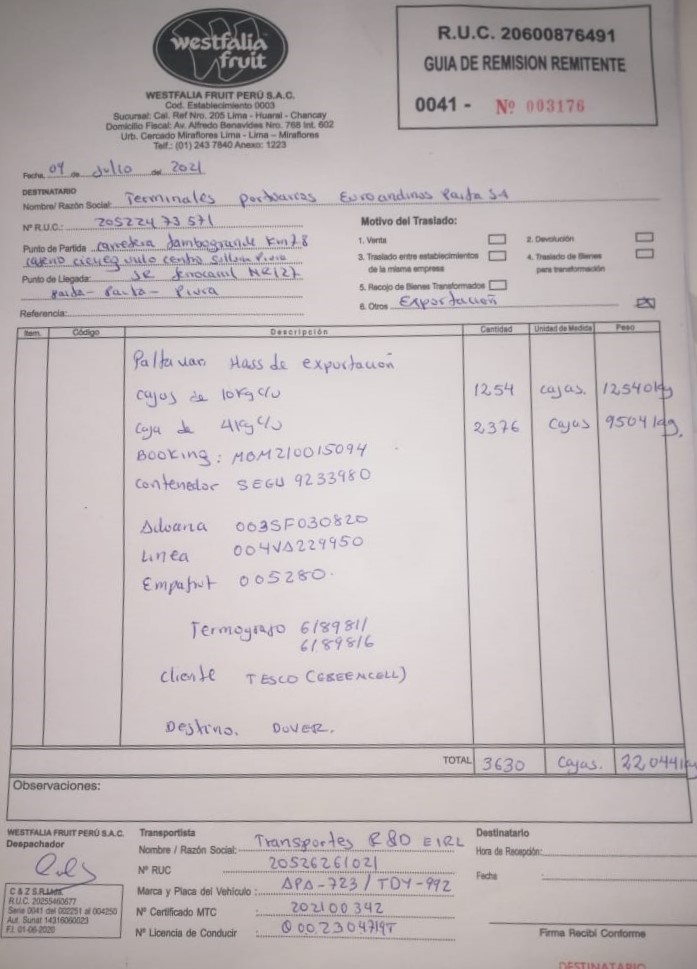 westfalia
fruit
R.U.C. 20600876491
GUIA DE REMISION REMITENTE
0041 - Nº 003176
WESTFALIA FRUIT PERÚ S.A.C.
Cod. Establecimiento 0003
Sucursal: Cal. Ref Nro. 205 Lima - Huaral - Chancay
Domicilio Fiscal: Av. Alfredo Benavides Nro. 768 Int. 602
Urb. Cercado Miraflores Lima - Lima - Miraflores
Telf.: (01) 243 7840 Anexo: 1223
Fecha, 09 de Julio del 2021
DESTINATARIO
Nombre/ Razón Social: Terminales portuarios Euroandinos Paita SA
Nº R.U.C.: 20522473571
Motivo del Traslado:
Punto de Partida carretera tambogrande Km78
1. Venta
2. Devolución
centro Sullana Piura
3. Traslado entre establecimientos de la misma empresa
4. Traslado de Bienes para transformación
Punto de Llegada: JR ferrocarril
Paita - Paita - Piura
5. Recojo de Bienes Transformados
6. Otros Exportación
Referencia:
Item. Código Descripción Cantidad Unidad de Medida Peso
Palta var. Hass de exportación
cajas de 10Kg c/u 1254 cajas. 12540kg
Caja de 4Kg c/u 2376 Cajas 9504 kg.
BOOKING: MOM210015094
Contenedor SEGU 9233980
Aduana 003SF030820
Linea 004VA229950
Empafrut 005280.
Termografo 6189811
6189816
Cliente TESCO (GREENCELL)
Destino. DOVER.
TOTAL 3630 Cajas. 22044kg
Observaciones:
WESTFALIA FRUIT PERÚ S.A.C.
Despachador
Transportista
Nombre / Razón Social: Transportes R&D EIRL
Nº RUC 20526261021
Marca y Placa del Vehículo: APA-723 / TDY-992
Nº Certificado MTC 202100342
Nº Licencia de Conducir
Destinatario
Hora de Recepción:
Fecha
Firma Recibí Conforme
C & Z S.R.
R.U.C. 20255460677
Serie 0041 del 002251 al 004250
Aut. Sunat 14316060023
F.I. 01-06-2020
DESTINATARIO